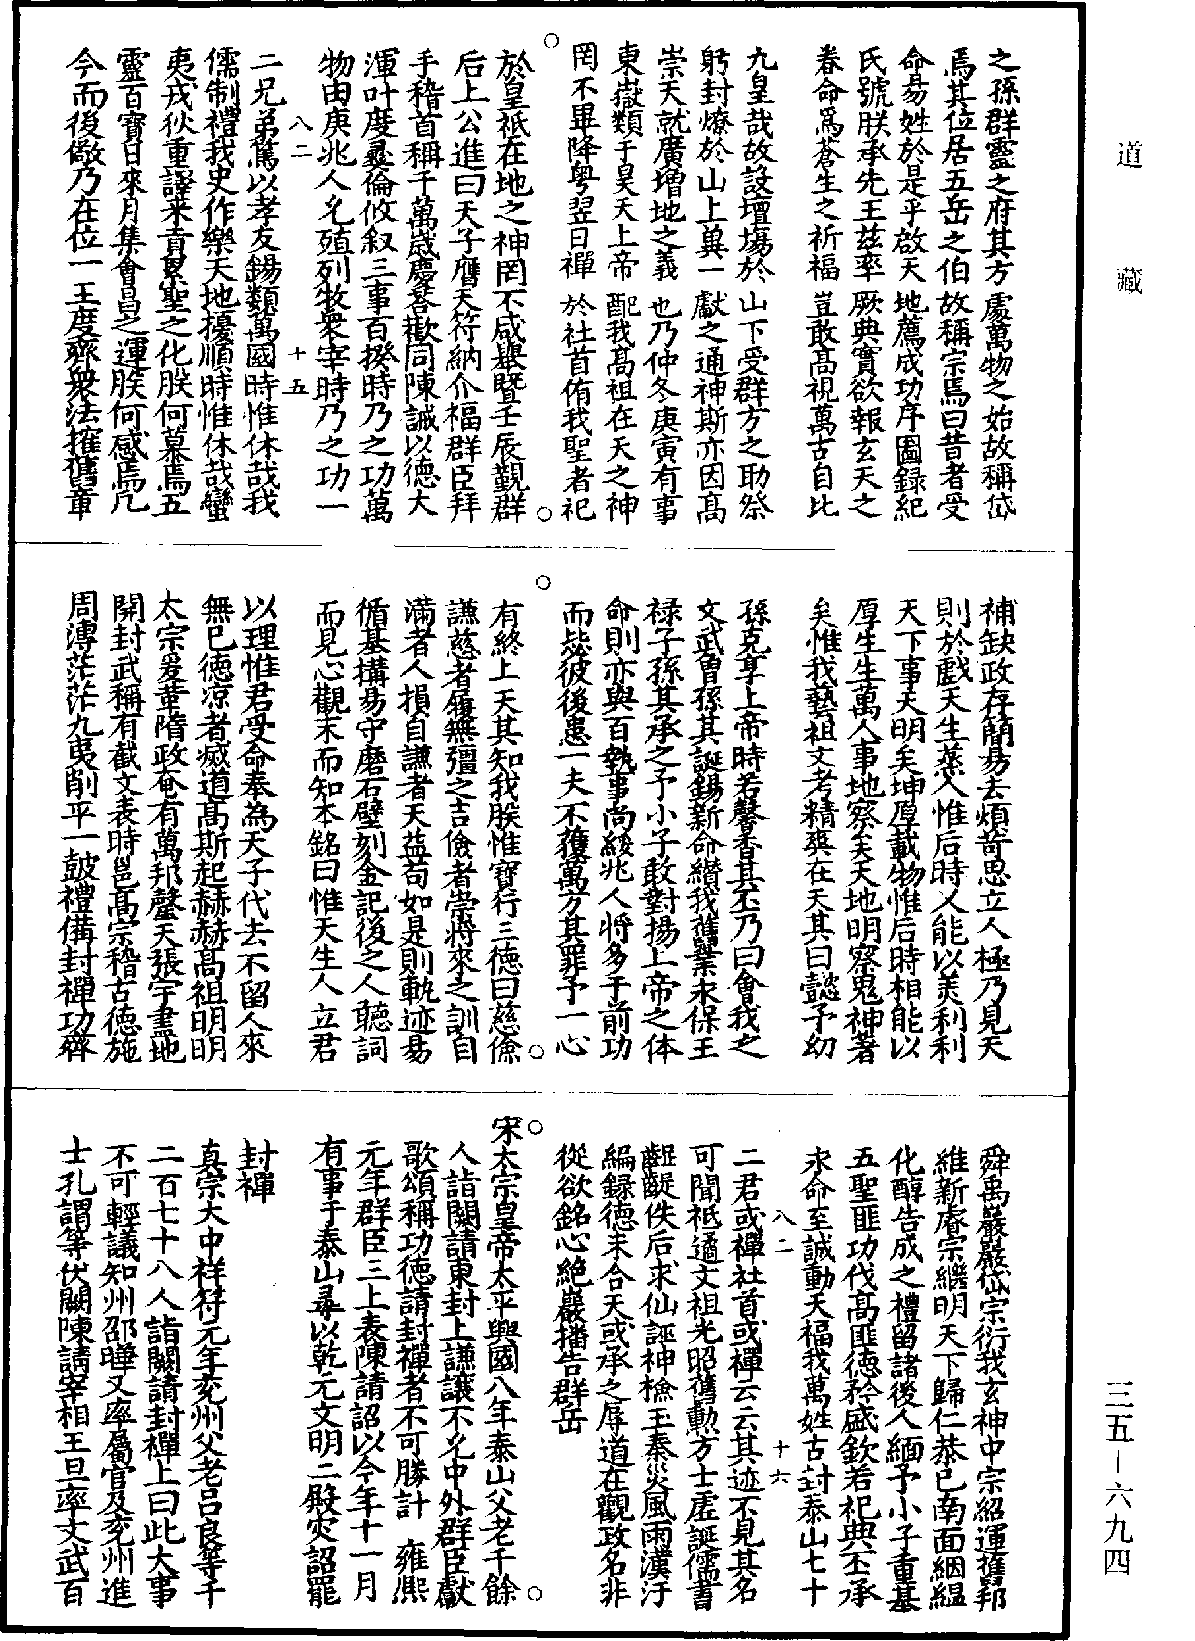 道藏
之孫群靈之府其方處萬物之始故稱岱
焉其位居五岳之伯故稱宗焉曰昔者受
命易姓於是乎啟天地薦成功序圖錄紀
氏號朕承先王茲率厥典實欲報玄天之
眷命爲蒼生之祈福豈敢高視萬古自比
九皇哉故設壇場於山下受群方之助祭
躬封燎於山上冀一獻之通神斯亦因高
崇天就廣增地之義也乃仲冬庚寅有事
東嶽類于昊天上帝配我高祖在天之神
罔不畢降粵翌日禪於社首侑我聖者祀
於皇祇在地之神罔不咸舉暨壬辰覲群
后上公進曰天子膺天符納介福群臣拜
手稽首稱千萬歲慶荅歡同陳誠以德大
渾叶度彝倫攸叙三事百揆時乃之功萬
物由庚兆人允殖列牧衆宰時乃之功一
八二 十五
二兄弟篤以孝友錫類萬國時惟休哉我
儒制禮我史作樂天地擾順時惟休哉蠻
夷戎狄重譯来貢累聖之化朕何慕焉五
靈百寶日來月集會昌之運朕何感焉凡
今而後儆乃在位一王度齊衆法摧舊章
補缺政存簡易去煩苛思立人極乃見天
則於戲天生蒸人惟后時乂能以美利利
天下事天明矣坤厚載物惟后時相能以
厚生生萬人事地察矣天地明察鬼神著
矣惟我藝祖文考精爽在天其曰懿予幼
孫克享上帝時若馨香其丕乃曰會我之
文武曾孫其誕錫新命纘我舊業永保王
禄子孫其承之予小子敢對揚上帝之休
命則亦與百執事尚綏兆人將多于前功
而毖彼後患一夫不獲萬方其罪予一心
有終上天其知我朕惟寶行三德曰慈儉
謙慈者履無疆之吉儉者崇將來之訓自
滿者人損自謙者天益苟如是則軌迹易
循基搆易守磨石壁刻金記後之人聽詞
而見心觀末而知本銘曰惟天生人立君
以理惟君受命奉為天子代去不留人來
無已德凉者滅道高斯起赫赫高祖明明
太宗爰革隋政奄有萬邦罄天張宇盡地
開封武稱有截文表時邕高宗稽古德施
周溥茫茫九夷削平一鼓禮備封禪功齊
舜禹巖巖岱宗衍我玄神中宗紹運舊邦
維新睿宗繼明天下歸仁恭已南面絪緼
化醇告成之禮留諸後人緬予小子重基
五聖匪功伐高匪德矜盛欽若祀典丕承
永命至誠動天福我萬姓古封泰山七十
八二 十六
二君或禪社首或禪云云其迹不見其名
可聞祗遹文祖光昭舊勳方士虚誕儒書
齷齪佚后求仙誣神檢玉秦災風雨漢汙
編録德未合天或承之辱道在觀政名非
從欲銘心絶巖播告群岳
宋太宗皇帝太平興國八年泰山父老千餘
人詣闕請東封上謙讓不允中外群臣獻
歌頌稱功德請封禪者不可勝計 雍熙
元年群臣三上表陳請詔以今年十一月
有事于泰山尋以乾元文明二殿灾詔罷
封禪
真宗大中祥符元年兖州父老吕良等千
二百七十八人詣闕請封禪上曰此大事
不可輕議知州邵曄又率屬官及兖州進
士孔謂等伏闕陳請宰相王旦率文武百
三五－六九四